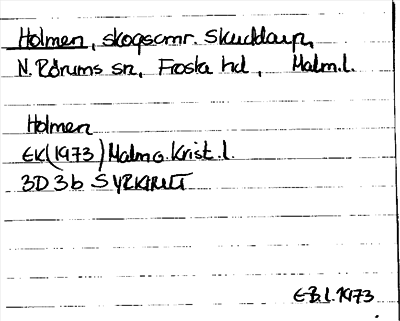 Holmen, skogsomr. Skuddarp,
N. Rörums sn, Frosta hd, Malm.l.
Holmen
EK(1973) Malmö.Krist.l.
3D 3b
E.B.l. 1973